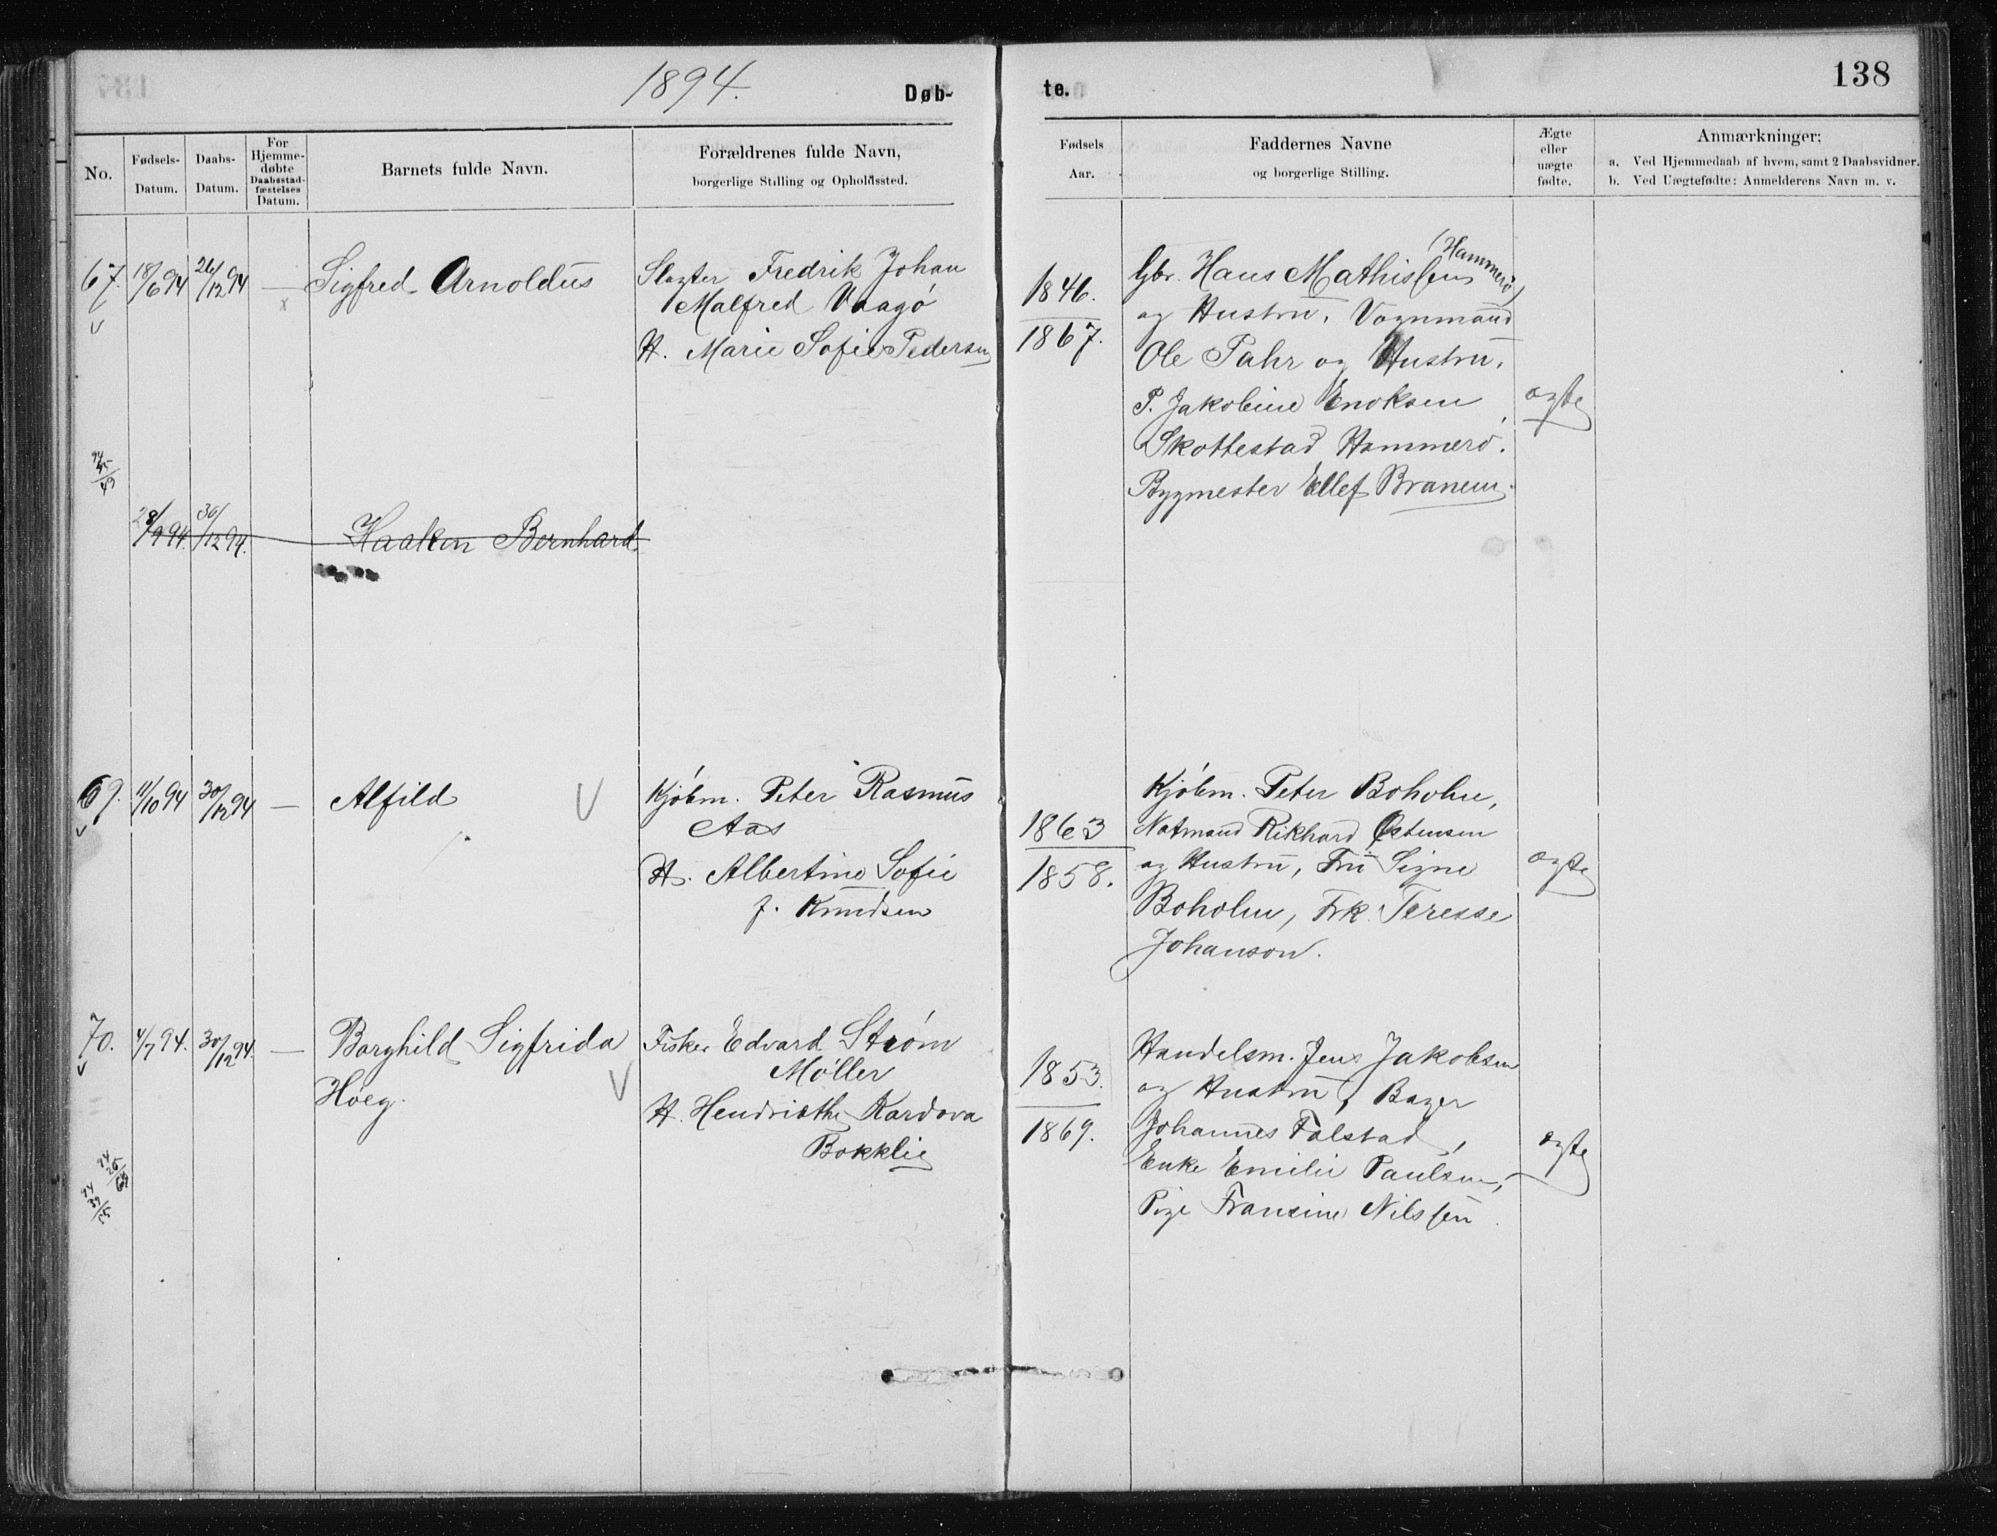 1894.
Døb-
te.
138
No.
Fødsels-
Datum.
Daabs-
Datum.
For
Hjemme-
døbte
Daabsstad-
fæstelses
Datum.
Barnets fulde Navn.
Forældrenes fulde Navn,
borgerlige Stilling og Opholdssted.
Fødsels
Aar.
Faddernes Navne
og borgerlige Stilling.
Ægte
eller
uægte
fødte.
Anmærkninger:
a. Ved Hjemmedaab af hvem, samt 2 Daabsvidner.
b. Ved Uægtefødte: Anmelderens Navn m. v.
67. 18/6 94 26/12 94 — Sigfred Arnoldus
Slagter Fredrik Johan
Malfred Vaagø
H. Marie Sofie Pedersen
1846.
1867.
Gbr. Hans Mathissen (Hammerø)
og Hustru, Vognmand
Ole Fahr og Hustru.
P. Jakobine Enoksen
Skottestad Hammerø.
Bygmester Ellef Branem.
ægte
94
45/49
28/9 94. 30/12 94. Haakon Bernhard
69. 11/10 94 30/12 94 — Alfild
Kjøbm. Peter Rasmus
Aas
H. Albertine Sofie
f. Knudsen
1863
1858.
Kjøbm. Peter Boholm,
Notmand Rikhard Østensen
og Hustru, Fru Signe
Boholm, Frk. Teresse
Johanson.
ægte
70. 4/7 94. 30/12 94. — Borghild Sigfrida
Høeg.
Fisker Edvard Strøm
Møller
H. Hendrikthe Kardova
Bokklie
1853.
1869.
Handelsm. Jens Jakobsen
og Hustru, Bager
Johannes Falstad,
Enke Emilie Paulsen,
Pige Fransine Nilssen
ægte